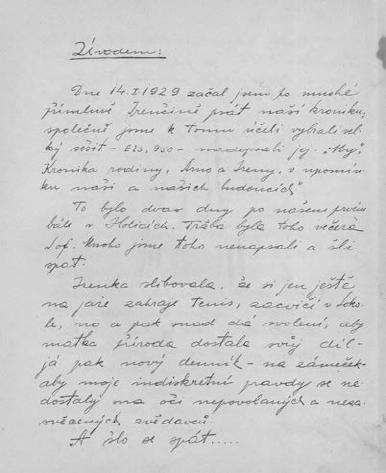 Závodem:
Dne 14.I.1929 začal jsem po mnohé
přímluvě Irenčině psát naši kroniku,
společně jsme k tomu účeli vybrali vel-
ký sešit - a nadepsali jej "My".
Kronika rodiny, Arno a Ireny, v upomín-
ku naši a našich budoucích"
To bylo dva dny po našem prvém
bále v Holicích. Tržba byla toho večera
Mnoho jsme toho nenapsali a šli
spát.
Irenka slibovala, že si jen ještě
na jaře zahraje Tenis, zacvičí v Soko-
le, no a pak snad dá svolení, aby
matka příroda dostala svůj díl -
já pak nový denník - na zámeček -
aby moje indiskrétní pravdy se ne-
dostaly na oči nepovolaných a neza-
svěcených zvědavců.
A šlo se spát.....